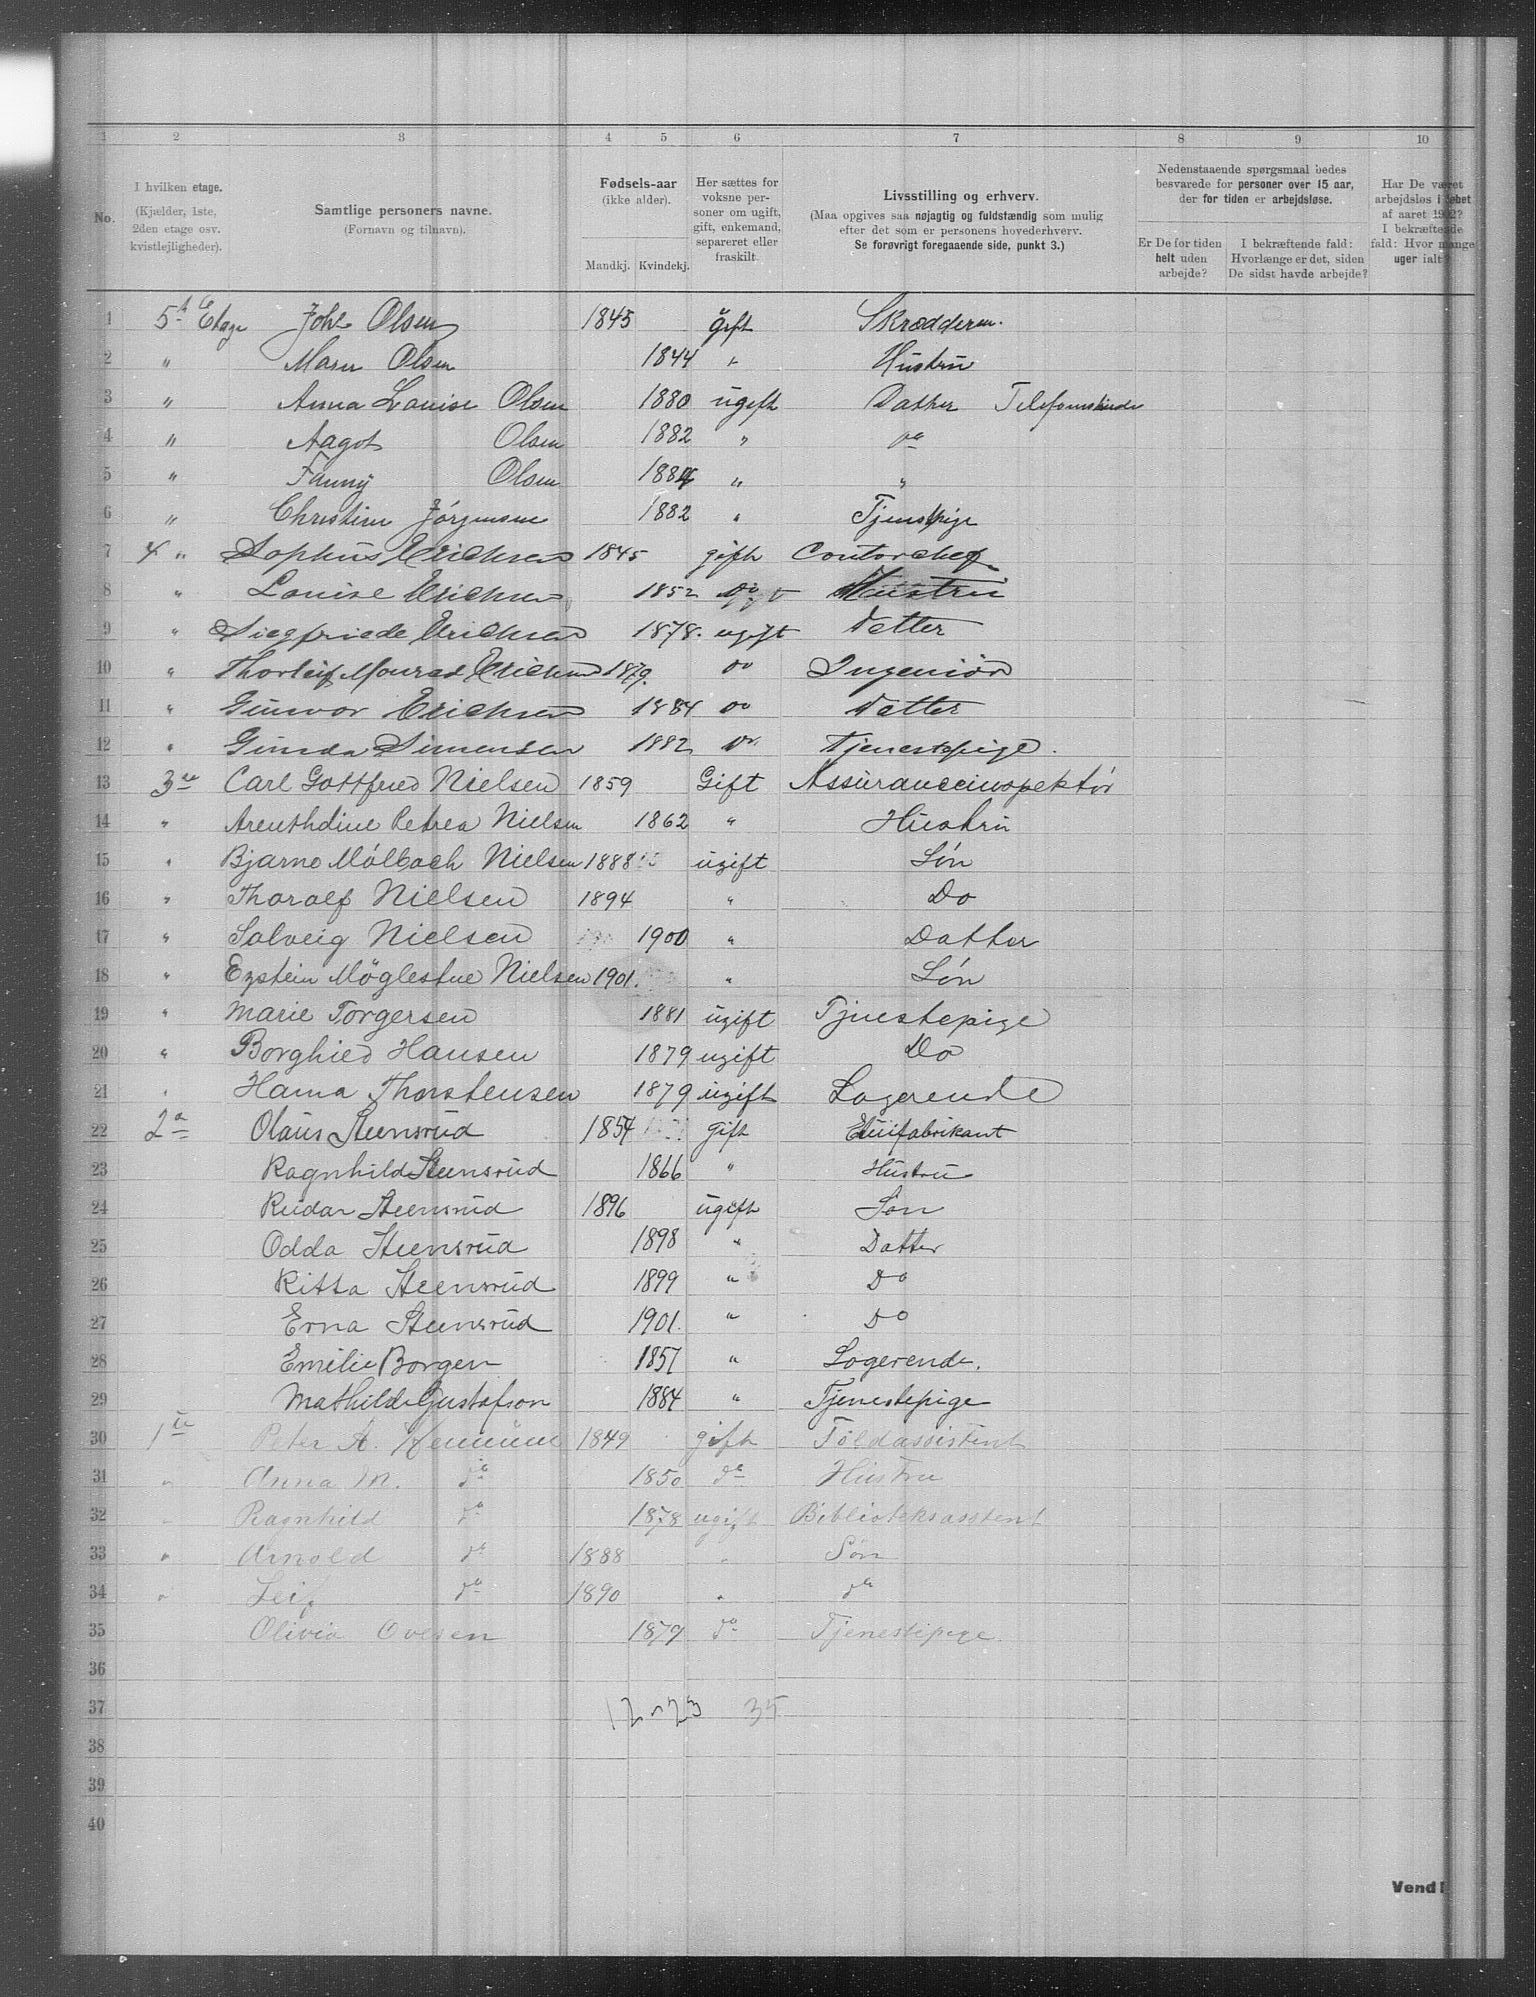 1 2 3 4 5 6 7 8 9 10
No.
I hvilken etage. (Kjælder, 1ste, 2den etage osv. kvistlejligheder).
Samtlige personers navne. (Fornavn og tilnavn).
Fødsels-aar (ikke alder). Mandkj. Kvindekj.
Her sættes for voksne personer om ugift, gift, enkemand, separeret eller fraskilt.
Livsstilling og erhverv. (Maa opgives saa nøjagtig og fuldstændig som mulig efter det som er personens hovederhverv. Se forøvrigt foregaaende side, punkt 3.)
Nedenstaaende spørgsmaal bedes besvarede for personer over 15 aar, der for tiden er arbejdsløse.
Er De for tiden helt uden arbejde?
I bekræftende fald: Hvorlænge er det, siden De sidst havde arbejde?
Har De været arbejdsløs i løbet af aaret 1902? I bekræftende fald: Hvor mange uger ialt?
1 5t Etage Johs Olsen 1845 gift Skrædderm.
2 " Olsen 1844 " Hustru
3 " Anna Louise Olsen 1880 ugift Datter
4 " Aagot Olsen 1882 " do
5 " Fanny Olsen 1884 " "
6 " Christine Jørgensen 1882 " Tjenstpige
7 4 " Sophus Erichsen 1845 gift Contorchef
8 " Louise Erichsen 1852 do Hustru
9 " Siegfriede Erichsen 1878. ugift Detter
10 " Thorleif Monrad Erichsen 1879. do Ingeniør
11 " Gunvor Erichsen 1884 do Detter
12 " Gunda Simensen 1882 do Tjenestepige.
13 3de Carl Gottfred Nielsen 1859 Gift Assuranceinspektør
14 " Arenthdine Petrea Nielsen 1862 " Hustru
15 " Bjarne Mølbach Nielsen 1888 ugift Søn
16 " Tharalf Nielsen 1894 " Do
17 " Solveig Nielsen 1900 " Datter
18 " Eystein Møglestue Nielsen 1901. " Søn
19 " Marie Torgersen 1881 ugift Tjenestepige
20 " Borghild Hansen 1879 ugift Do
21 " Hanna Thorstensen 1879 ugift Logerende
22 2a Olaus Steensrud 1854 gift Etuifabrikant
23 Ragnhild Steensrud 1866 " Hustru
24 Reidar Steensrud 1896 ugift Søn
25 Odda Steensrud 1898 " Datter
26 Ritta Steensrud 1899 " Do
27 Erna Steensrud 1901. " Do
28 Emilie Borgen 1857 " Logerende.
29 Mathilde Gustafson 1884 " Tjenestepige
30 1ste Peter A. 1849 gift Toldassistent
31 " Anna M. do 1850 do Hustru
32 " Ragnhild do 1878 ugift Biblioteksasstent
33 " Arnold do 1888 " Søn
34 " Leif do 1890 " do
35 Olivia Ovesen 1879 do Tjenestepige.
36
37 12-23 35
38
39
40
Vend!